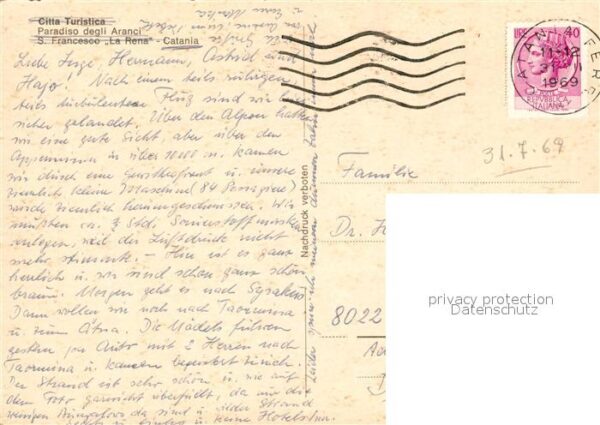 Citta Turistica
Paradiso degli Aranci
S. Francesco „La Rena" - Catania
Liebe Inge, Hermann, Astrid und
Hajo! Nach einem teils ruhigen,
teils turbulenten Flug sind wir hier
sicher gelandet. Über den Alpen hatten
wir eine gute Sicht, aber über den
Appenninen in über 10000 m kamen
wir durch eine Gewitterfront u. unsere
ziemlich kleine Maschine (84 Passagiere)
wurde ziemlich herumgeschmissen. Wir
mußten ca. ½ Std. Sauerstoffmasken
anlegen, weil der Luftdruck nicht
mehr stimmte. – Hier ist es ganz
herrlich u. wir sind schon ganz schön
braun. Morgen geht es nach Syrakus
Dann wollen wir noch nach Taormina
u. zum Ätna. Die Mädels fuhren
gestern per Auto mit 2 Herren nach
Taormina u. kamen begeistert zurück.
Der Strand ist sehr schön u. nie auf
dem Foto garnicht überfüllt, da nur die
wenigen Bungalows da sind u.
Strand
u. keine Hotels
Nachdruck verboten
LIRE 40
REPVBBLICA
ITALIANA
CATANIA FERR
1969
31.7.69
Familie
Dr.
8022
privacy protection
Datenschutz